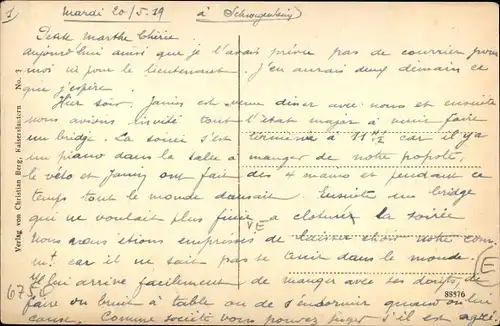 1) mardi 20/5.19 à Schwogenheim
Petite Marthe Chérie
aujourd'hui ainsi que je l'avais prévu pas de courrier pour
moi ni pour le lieutenant. J'en aurais deux demain ce
que j'espère.
Hier soir est venu diner avec nous et ensuite
nous avions invité tout l'Etat major à venir faire
un bridge. La soirée s'est terminée à 11 H 1/2 car il y a
un piano dans la salle à manger de notre popote.
le véto et ont fait des 4 mains et pendant ce
temps tout le monde dansait. Ensuite un bridge
qui ne voulait plus finir a cloturer la soirée
nous nous étions empressés de laisser choir notre com
mt. car il ne sait pas se tenir dans le monde.
Il lui arrive facilement de manger avec ses doigts, de
faire du bruit à table ou de s'endormir quand on lui
cause. Comme société vous pouvez juger s'il est agré
Verlag von Christian Berg, Kaiserslautern No. 3
VE
E
67
88376